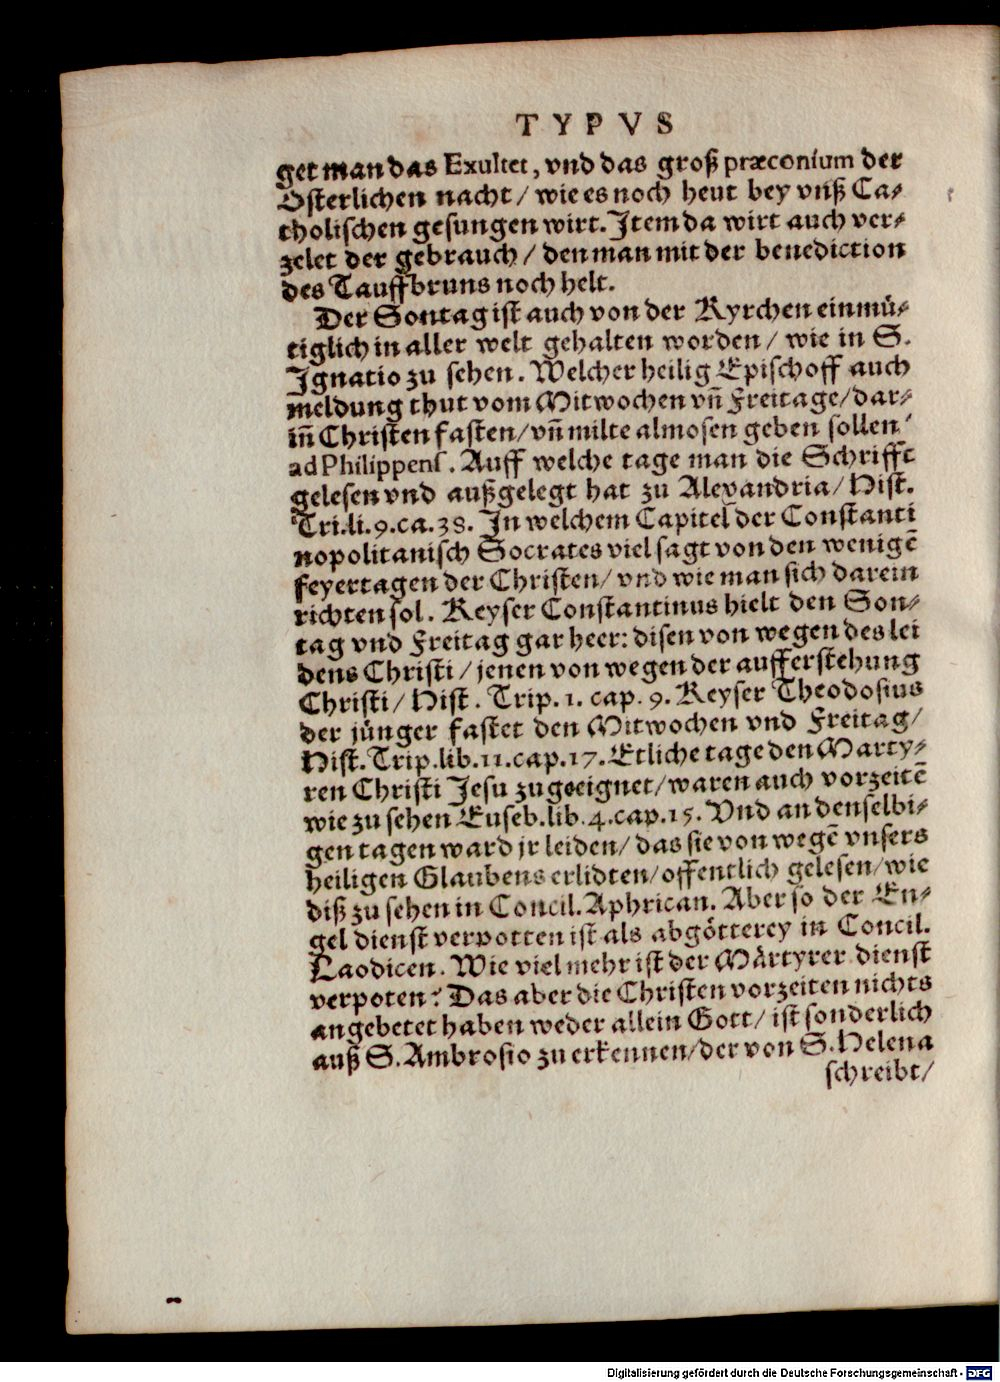 TYPVS
get man das Exultet, vnd das groß præconium der
Osterlichen nacht / wie es noch heut bey vnß Ca-
tholischen gesungen wirt. Item da wirt auch ver-
zelet der gebrauch / den man mit der benediction
des Tauffbruns noch helt.
Der Sontag ist auch von der Kyrchen einmü-
tiglich in aller welt gehalten worden / wie in S.
Ignatio zu sehen. Welcher heilig Epischoff auch
meldung thut vom Mitwochen vñ Freitage / dar-
iñ Christen fasten / vñ milte almosen geben sollen
ad Philippens. Auff welche tage man die Schrifft
gelesen vnd außgelegt hat zu Alexandria / Hist.
Tri. li. 9. ca. 38. In welchem Capitel der Constanti
nopolitanisch Socrates viel sagt von den wenigē
feyertagen der Christen / vnd wie man sich darein
richten sol. Keyser Constantinus hielt den Son-
tag vnd Freitag gar heer: disen von wegen des lei
dens Christi / jenen von wegen der aufferstehung
Christi / Hist. Trip. 1. cap. 9. Keyser Theodosius
der jünger fastet den Mitwochen vnd Freitag /
Hist. Trip. lib. 11. cap. 17. Etliche tage den Marty-
ren Christi Jesu zugeeignet / waren auch vorzeitē
wie zu sehen Euseb. lib. 4. cap. 15. Vnd an denselbi-
gen tagen ward jr leiden / das sie von wegē vnsers
heiligen Glaubens erlidten / offentlich gelesen / wie
diß zu sehen in Concil. Aphrican. Aber so der En-
gel dienst verpotten ist als abgötterey in Concil.
Laodicen. Wie viel mehr ist der Märtyrer dienst
verpoten? Das aber die Christen vorzeiten nichts
angebetet haben weder allein Gott / ist sonderlich
auß S. Ambrosio zu erkennen / der von S. Helena
schreibt /
Digitalisierung gefördert durch die Deutsche Forschungsgemeinschaft - DFG